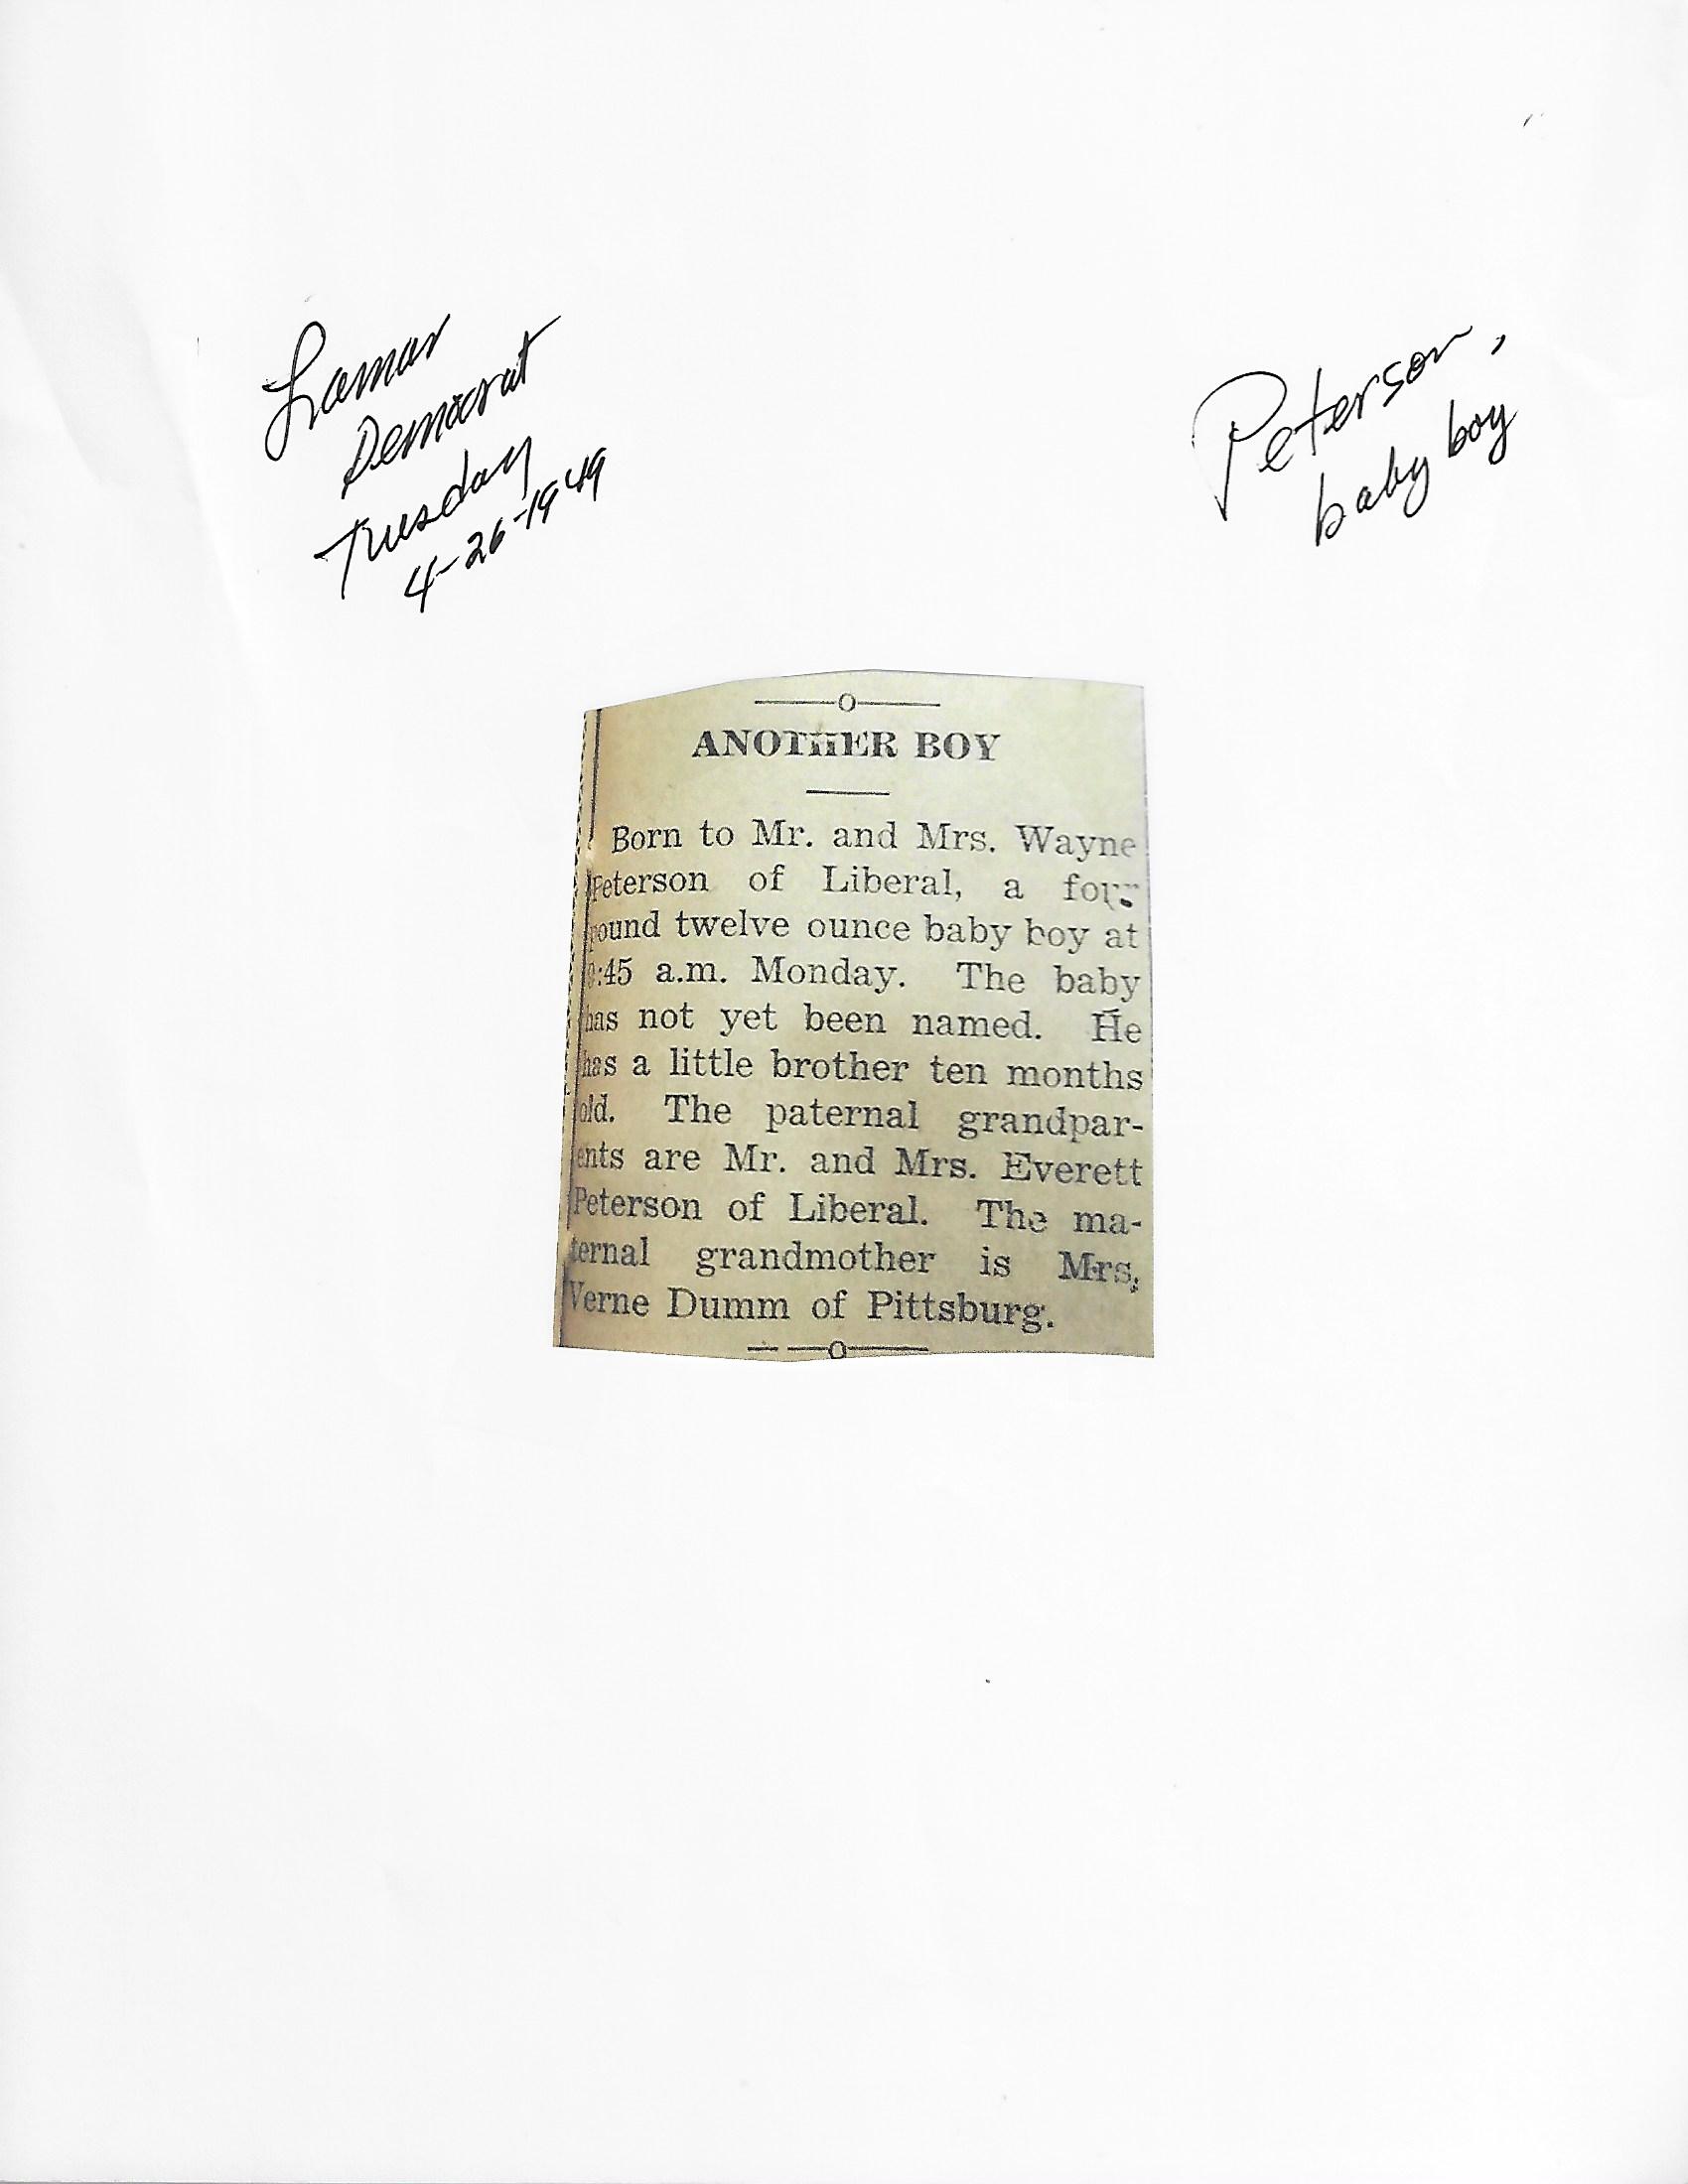 Lamar
Democrat
Tuesday
4-26-1949
Peterson,
baby boy
ANOTHER BOY
Born to Mr. and Mrs. Wayne
Peterson of Liberal, a
pound twelve ounce baby boy at
:45 a.m. Monday. The baby
has not yet been named. He
has a little brother ten months
old. The paternal grandpar-
ents are Mr. and Mrs. Everett
Peterson of Liberal. The ma-
ternal grandmother is Mrs.
Verne Dumm of Pittsburg.